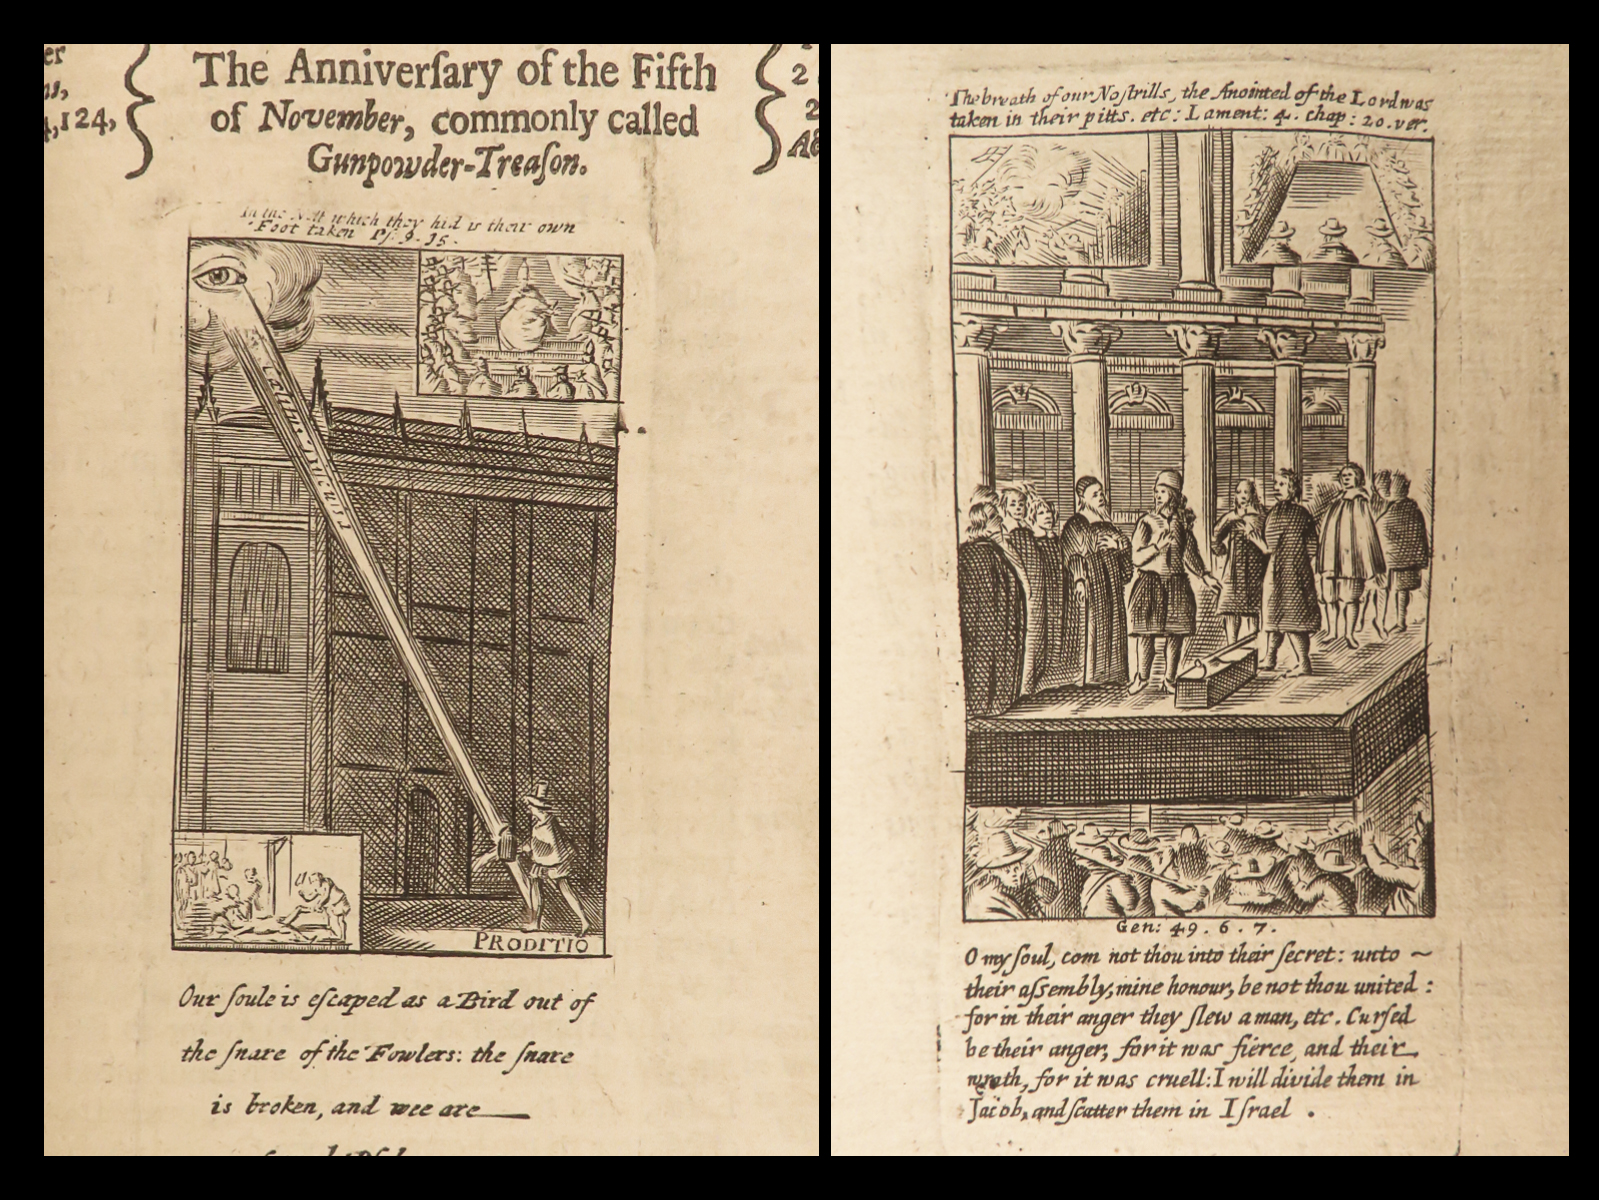 er
ns,
4,124,
The Anniverſary of the Fifth
of November, commonly called
Gunpowder-Treaſon.
2
2
A&
In the Nett which they hid is their own
Foot taken Pſ. 9. 15.
PRODITIO
Our ſoule is eſcaped as a Bird out of
the ſnare of the Fowlers: the ſnare
is broken, and wee are
The breath of our Noſtrills, the Anointed of the Lord was
taken in their pitts. etc: Lament: 4. chap: 20. ver.
Gen: 49. 6. 7.
O my ſoul, com not thou into their ſecret: unto ~
their aſſembly, mine honour, be not thou united:
for in their anger they ſlew a man, etc. Curſed
be their anger, for it was fierce, and their
wrath, for it was cruell: I will divide them in
Jacob, and ſcatter them in Iſrael.